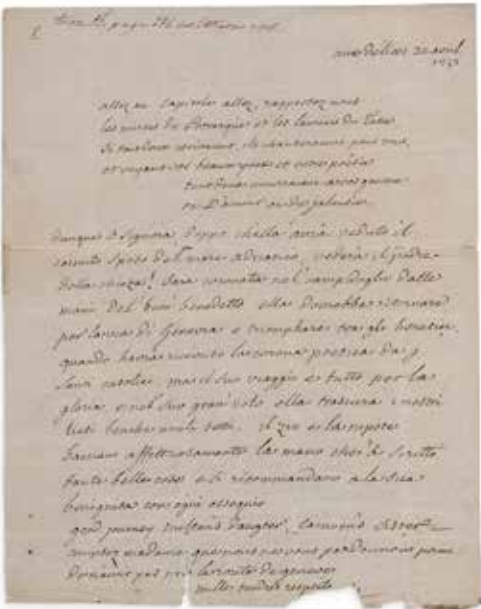 aux Délices 20 avril
1757
allez au capitole allez, rapportez nous
les mirtes de Petrarque et les lauriers du Tasse
Si tous deux revivaient, ils chanteraient pour vous,
et voyant vos beaux yeux et votre poésie
tous deux mourraient à vos genoux
ou D'amour ou de jalousie.
dunque o Signora Doppo ch'ella avrà veduto il
sposo del mare adriatico, vedrà il padre
della chieza! Sara coronata nel campidoglio dalle
mani del buon benedetto ella dovrebbe ritornare
per la via di Genevra e triumphare tra gli heretici,
quando havrà ricevuto la corona poetica da
santi catolici. ma il suo viaggio e tutto per la
gloria, e nel suo gran volo ella trascura i nostri
tetti. il zio e la nipote
baciano affettuosamente la mano che a scritto
tante belle cose e si ricommandano a la sua
benignita con ogni ossequio
good journey Milton's daugter, Camoens's sister
comptez madame que nous ne vous pardonnons point
de n'avoir pas pris la route de geneve
mille tendres respects